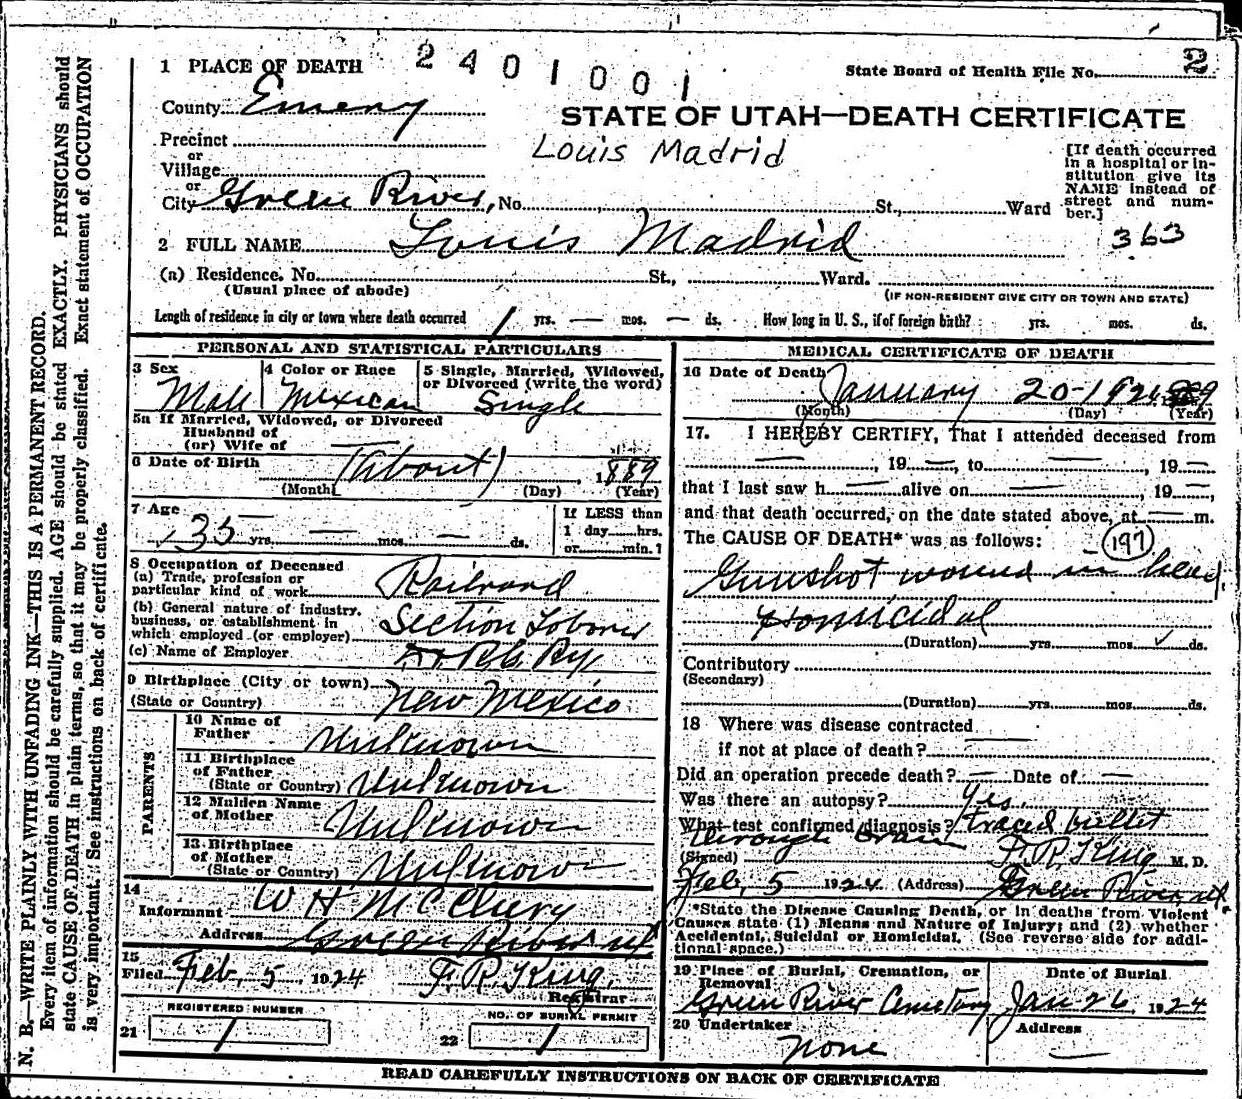 2401001
1 PLACE OF DEATH
State Board of Health File No. 2
County Emery
STATE OF UTAH—DEATH CERTIFICATE
Precinct
Louis Madrid
or
Village
or
City Green River, No. St., Ward
[If death occurred
in a hospital or in-
stitution give its
NAME instead of
street and num-
ber.]
363
2 FULL NAME Louis Madrid
(a) Residence. No. St., Ward.
(Usual place of abode)
(IF NON-RESIDENT GIVE CITY OR TOWN AND STATE)
Length of residence in city or town where death occurred 1 yrs. — mos. — ds. How long in U. S., if of foreign birth? yrs. mos. ds.
PERSONAL AND STATISTICAL PARTICULARS
3 Sex
Male
4 Color or Race
Mexican
5 Single, Married, Widowed,
or Divorced (write the word)
Single
5a If Married, Widowed, or Divorced
Husband of
(or) Wife of —
6 Date of Birth (About) 1889
(Month) (Day) (Year)
7 Age
35 yrs. — mos. — ds.
If LESS than
1 day hrs.
or min.?
8 Occupation of Deceased
(a) Trade, profession or
particular kind of work Railroad
(b) General nature of industry,
business, or establishment in
which employed (or employer) Section Laborer
(c) Name of Employer Ry
9 Birthplace (City or town)
(State or Country) New Mexico
PARENTS
10 Name of
Father Unknown
11 Birthplace
of Father
(State or Country) Unknown
12 Maiden Name
of Mother Unknown
13 Birthplace
of Mother
(State or Country) Unknown
14
Informant W H McClury
Address Green River Ut
15
Filed Feb. 5 1924 F. R. King
Registrar
REGISTERED NUMBER
21 1
NO. OF BURIAL PERMIT
22 1
MEDICAL CERTIFICATE OF DEATH
16 Date of Death January 20-1924
(Month) (Day) (Year)
17. I HEREBY CERTIFY, That I attended deceased from
—, 19—, to —, 19—
that I last saw h— alive on —, 19—,
and that death occurred, on the date stated above, at — m.
The CAUSE OF DEATH* was as follows:
197
Gunshot wound in head.
Homicidal
(Duration) yrs. mos. ds.
Contributory
(Secondary)
(Duration) yrs. mos. ds.
18 Where was disease contracted
if not at place of death?
Did an operation precede death? — Date of —
Was there an autopsy? Yes.
What test confirmed diagnosis? traced bullet
through brain
(Signed) F. R. King M. D.
Feb, 5 1924 (Address) Green River, Ut.
*State the Disease Causing Death, or in deaths from Violent
Causes state (1) Means and Nature of Injury; and (2) whether
Accidental, Suicidal or Homicidal. (See reverse side for addi-
tional space.)
19 Place of Burial, Cremation, or
Removal
Green River Cemetary
Date of Burial
Jan 26, 1924
20 Undertaker
none
Address
—
READ CAREFULLY INSTRUCTIONS ON BACK OF CERTIFICATE
N. B.—WRITE PLAINLY WITH UNFADING INK—THIS IS A PERMANENT RECORD.
Every item of information should be carefully supplied. AGE should be stated EXACTLY. PHYSICIANS should
state CAUSE OF DEATH in plain terms, so that it may be properly classified. Exact statement of OCCUPATION
is very important. See instructions on back of certificate.